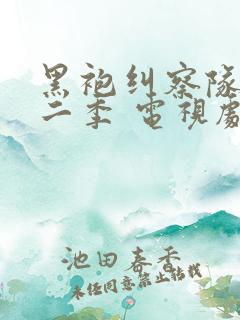 黑袍纠察队
二季 電視劇
池田春香
未经同意禁止转载